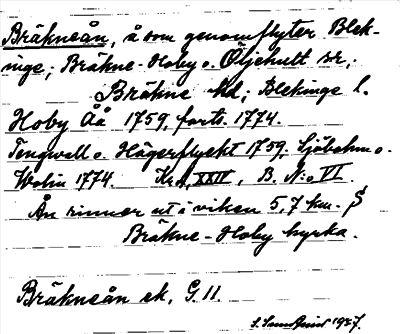 Bräkneån, å som genomflyter Blek-
inge; Bräkne-Hoby o. Öljehult sr,
Bräkne hd; Blekinge l.
Hoby Åå 1759, forts. 1774.
Tengwall o. Hägerflyckt 1759, Sjöbohm o.
Wolin 1774. XXIV, B. N:o VI.
Ån rinner ut i viken 5,7 km. S
Bräkne-Hoby kyrka.
Bräkneån ek. G 11.
1927.